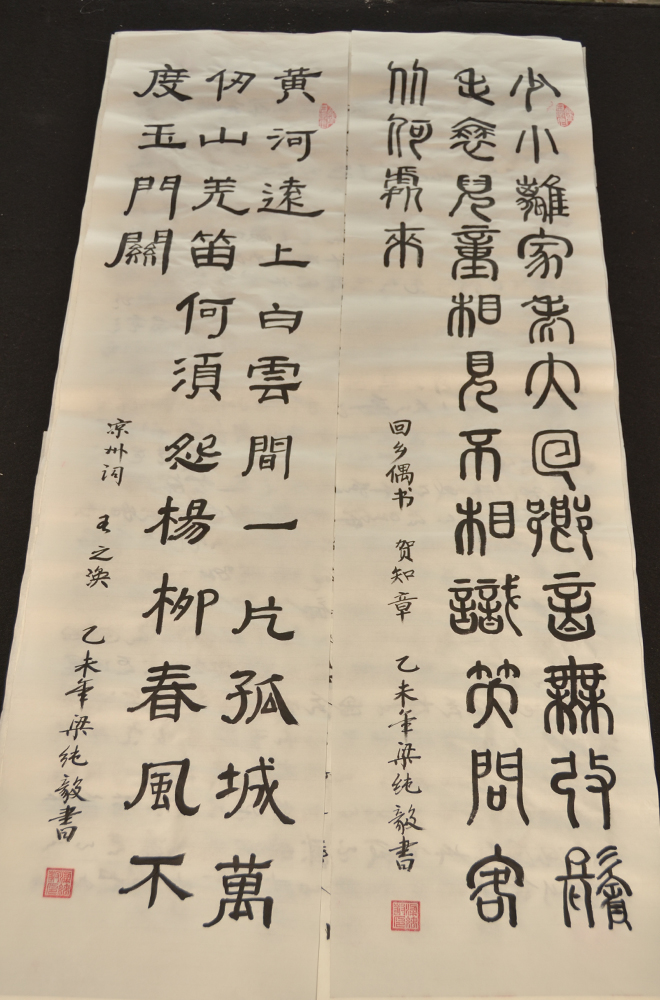 少小離家老大回鄉音無改鬢
毛衰兒童相見不相識笑問客
从何處來
回乡偶书 贺知章 乙未年梁纯毅書
黄河遠上白雲間一片孤城萬
仞山羌笛何須怨楊柳春風不
度玉門關
凉州词 王之涣 乙未年梁纯毅書